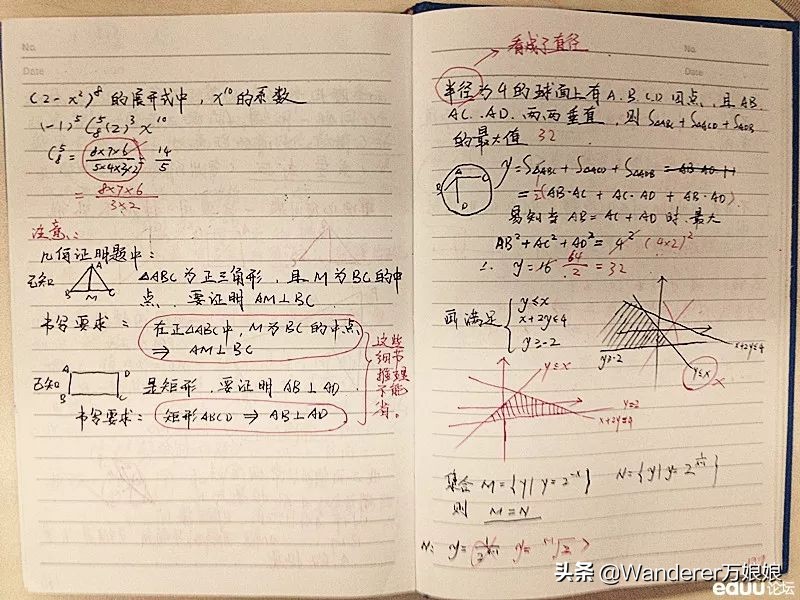 No.
Date
(2-x²)⁸ 的展开式中，x¹⁰的系数
(-1)⁵C₈⁵(2)³x¹⁰
C₈⁵ = 8×7×6 / 5×4×3×2 = 14/5
= 8×7×6 / 3×2
注意：
几何证明题中：
已知 A B M C △ABC为正三角形，且M为BC的中
点，要证明 AM⊥BC.
书写要求：在正△ABC中，M为BC的中点
⇒ AM⊥BC
这些细节推理不能省。
已知 A B C D 是矩形，要证明 AB⊥AD.
书写要求：矩形ABCD ⇒ AB⊥AD.
No.
Date
看成了直径
半径为4的球面上有A.B.C.D四点，且AB.
AC.AD.两两垂直，则S△ABC+S△ACD+S△ADB
的最大值 32
A B C D y=S△ABC+S△ACD+S△ADB
=½(AB·AC+AC·AD+AB·AD)
易知当AB=AC=AD时最大
AB²+AC²+AD²=4² (4×2)²
∴ y=16 64/2 =32
画满足
y≤x
x+2y≤4
y≥-2
y≥-2
x+2y≤4
y≤x
y≤x
y=2
x+2y=4
集合 M={y|y=2⁻ˣ}
则 M=N
N:
头条 @Wanderer万娘娘
eduu论坛